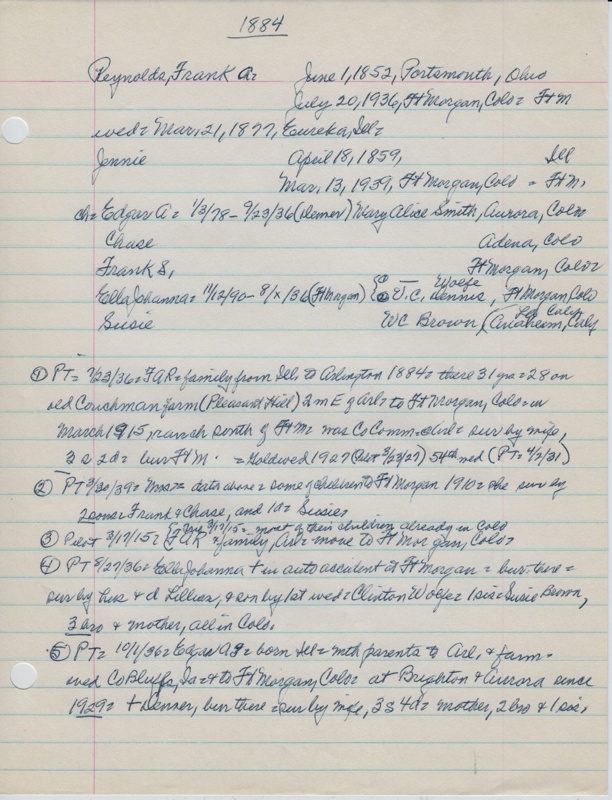 1884
Reynolds, Frank A= June 1, 1852, Portsmouth, Ohio
July 20, 1936, Ft Morgan, Colo= Ft M
wed= Mar, 21, 1877, Eureka, Ill=
Jennie April 18, 1859, Ill
Mar, 13, 1939, Ft Morgan, Colo = Ft M,
ch= Edgar A= 1/3/78 - 9/23/36 (Denver) Mary Alice Smith, Aurora, Colo=
Chase Adena, Colo
Frank S, Ft Morgan, Colo=
Ella Johanna= 11/12/90 - 8/x/36 (Ft Morgan) Wolfe
W.C. Dennis, Ft Morgan, Colo
Susie WC Brown (Anaheim, Calif
① PT= 7/23/36= FAR= family from Ill= to Arlington 1884= there 31 yrs= 28 on
old Couchman farm (Pleasant Hill) 2 m E of Arl= to Ft Morgan, Colo= in
March 1915, ranch south of Ft M= was Co Comm= sur by wife,
3 s 2 d= bur Ft M. = Gold wed 1927 3/23/27) 54th wed (PT= 4/2/31)
② PT 3/30/39= Mrs= data above= some of children to Ft Morgan 1910= she sur by
2 sons= Frank & Chase, and 1 d= Susie=
③ Pilot 3/17/15= FAR & family, Arl= move to Ft Morgan, Colo=
3/17/15= most of their children already in Colo
④ PT 8/27/36= Ella Johanna + in auto accident at Ft Morgan= bur there=
sur by hus & d Lillian, & son by 1st wed= Clinton Wolfe= 1 sis= Susie Brown,
3 bro & mother, all in Colo.
⑤ PT= 10/1/36= Edgar A= born Ill= with parents to Arl, & farm=
wed Co Bluffs, Ia= & to Ft Morgan, Colo= at Brighton & Aurora since
1929= + Denver, bur there= sur by wife, 3 s 4 d= mother, 2 bro & 1 sis,